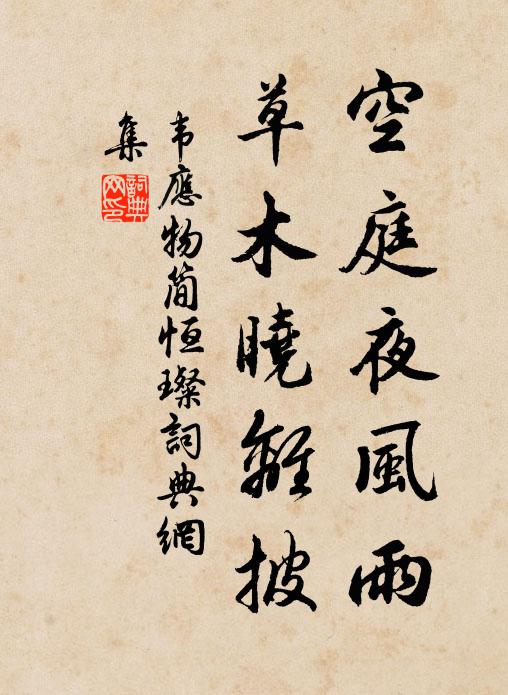 空庭夜風雨
草木曉離披
韦應物簡恒璨詞典網
集
詞典
网印